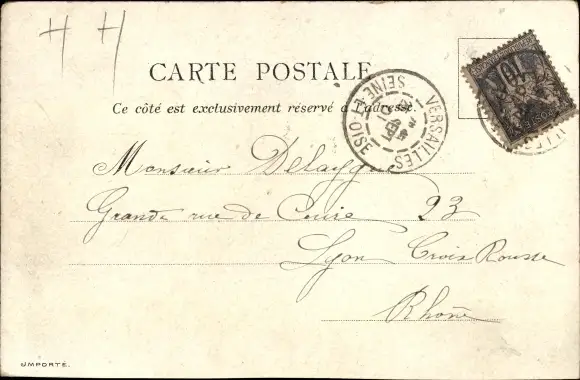 H H
CARTE POSTALE
Ce côté est exclusivement réservé à l'adresse.
VERSAILLES
SEINE-ET-OISE
10
Monsieur
Grande rue de Cuire 23
Lyon Croix Rousse
Rhône
IMPORTÉ.